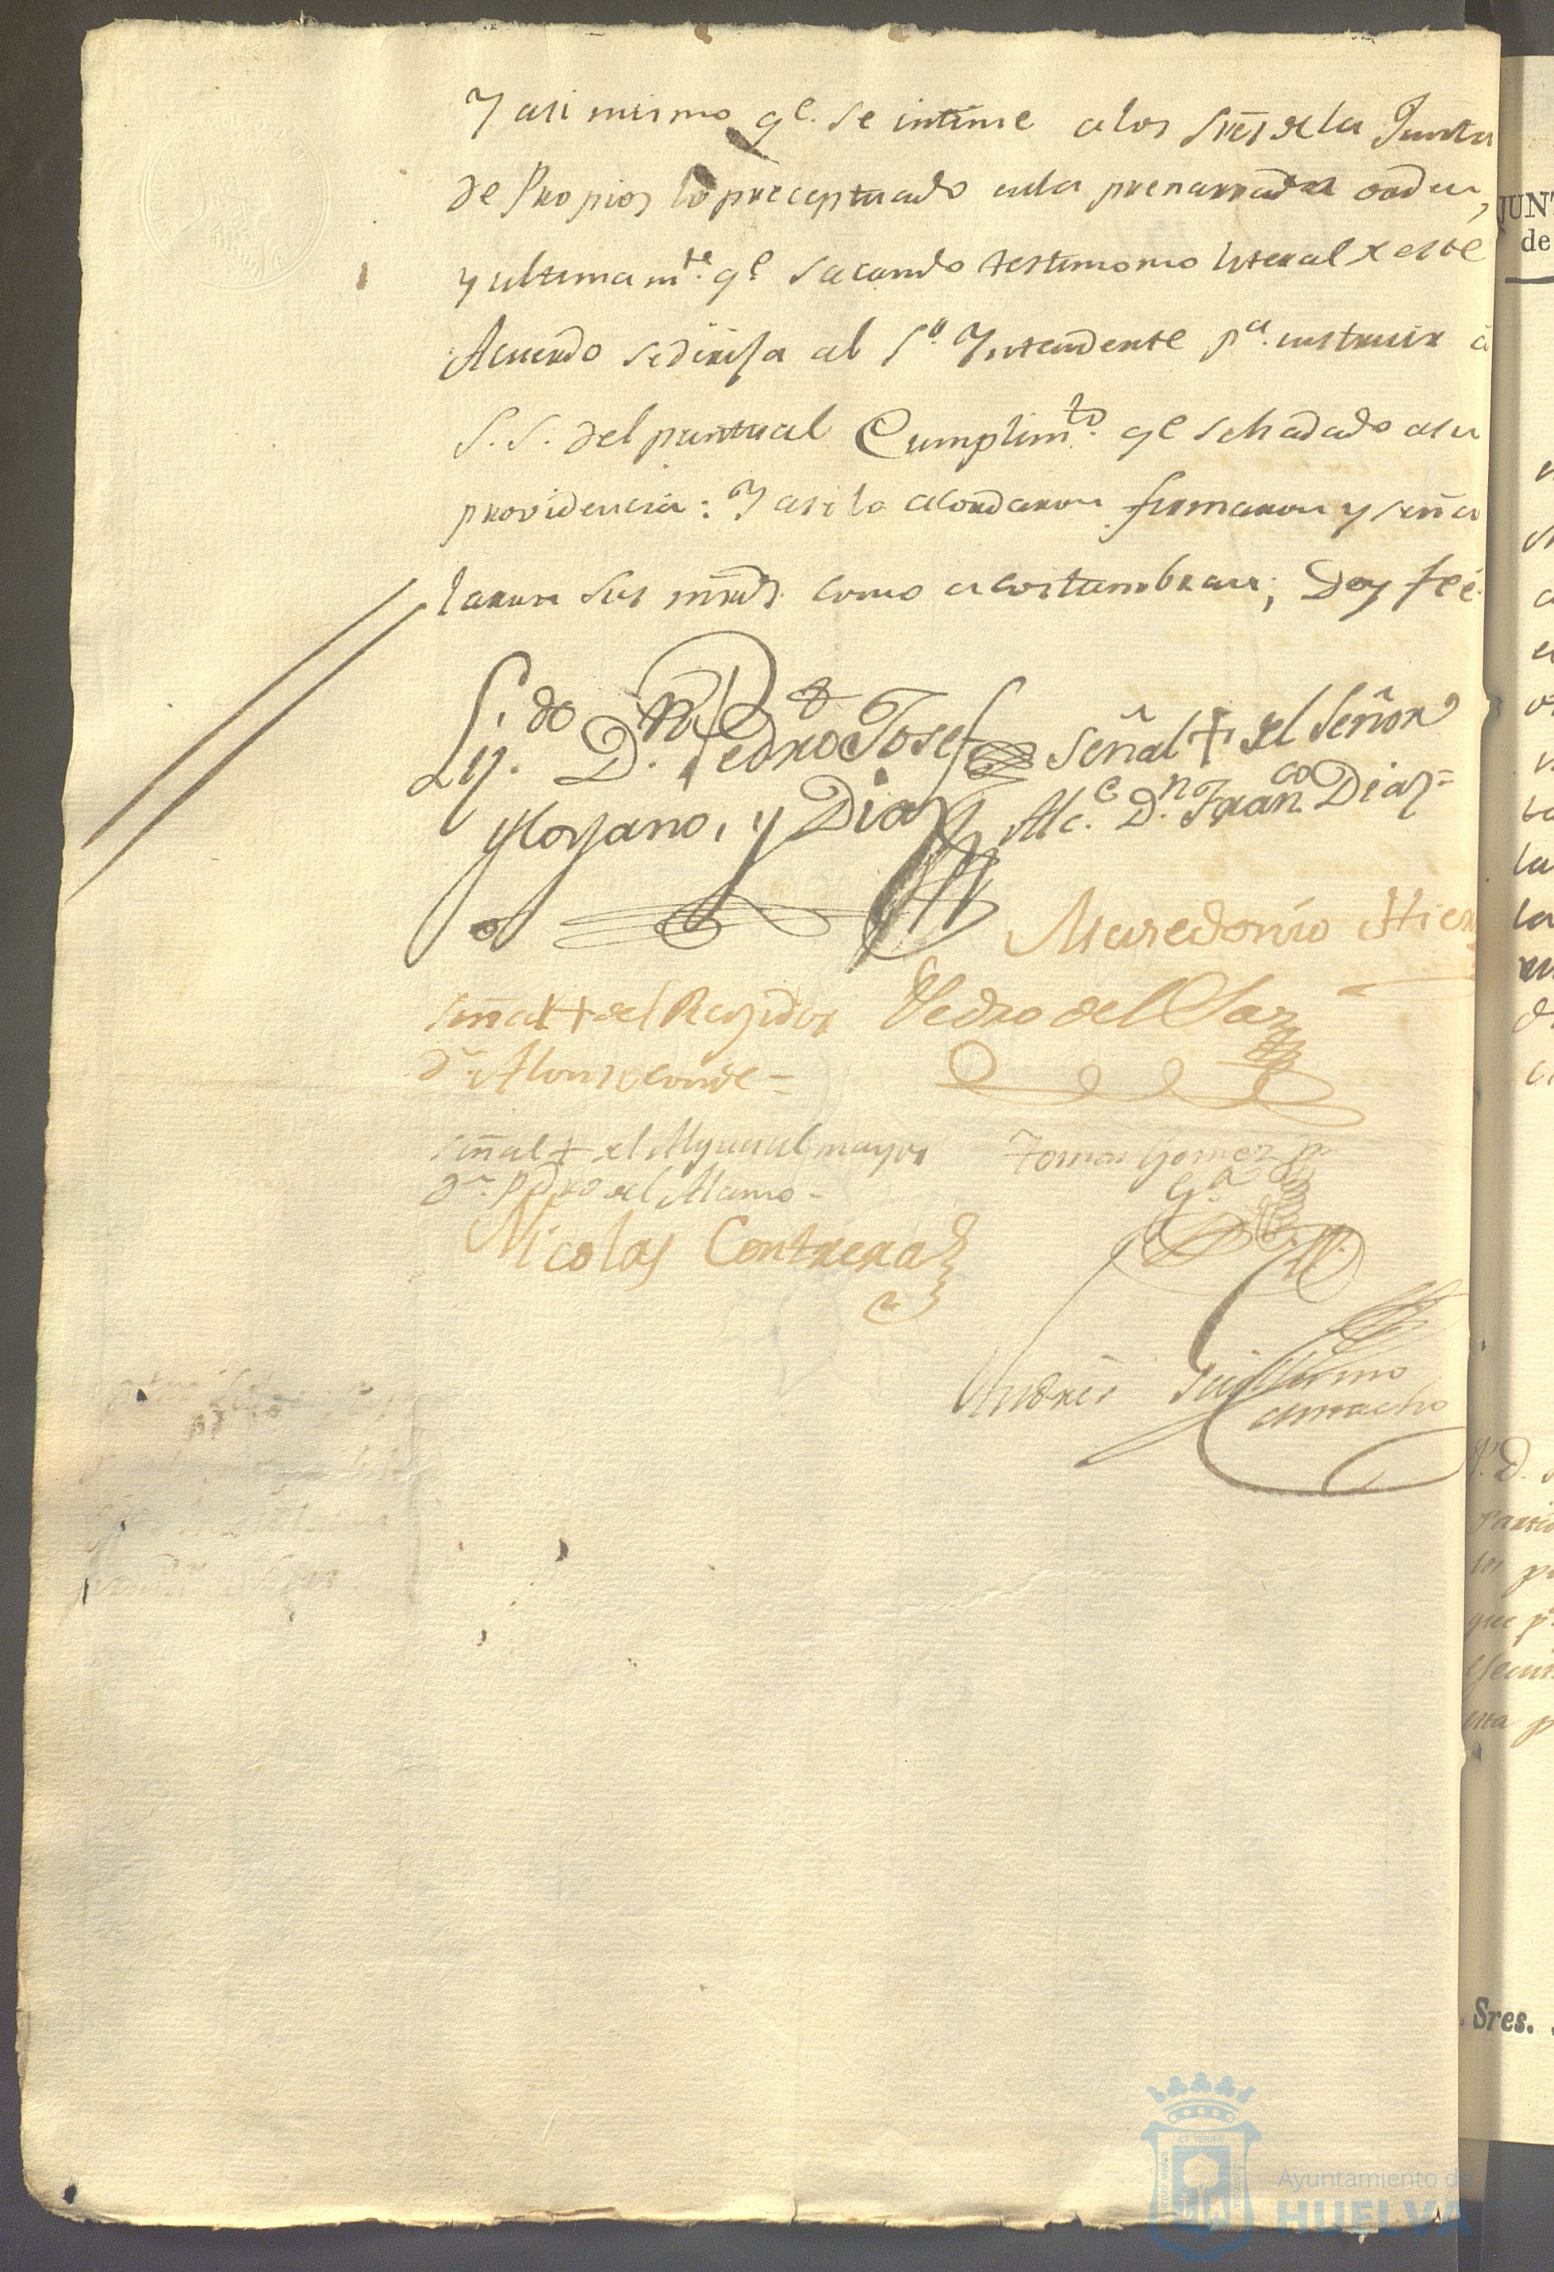 Y asi mismo qe. se intime a los Sres de la Junta
de Propios lo preceptuado enla prenarrada orden,
y ultimamte. qe. sacando testimonio literal de este
Acuerdo se dirija al Sor. Yntendente pa. instruir á
S. S. del puntual Cumplimto. qe se ha dado a su
providencia: Y asi lo acordaron firmaron y seña
laron sus mrds. como acostumbran; Doy feé.
Lizdo. Dn. Pedro Josef
Moyano, y Diaz
Señal + del Señor
Alce. Dn. Franco. Diaz=
Macedonio
Señal + del Regidor
Dn. Alonso Conde =
Pedro del Saz
Señal + del Alguacil mayor
Dn. Pedro del Alamo -
Tomas Gomez
Nicolas Contreras
Andres Guillermo
Camacho
JUNT
de
Sres.
Ayuntamiento de
HUELVA